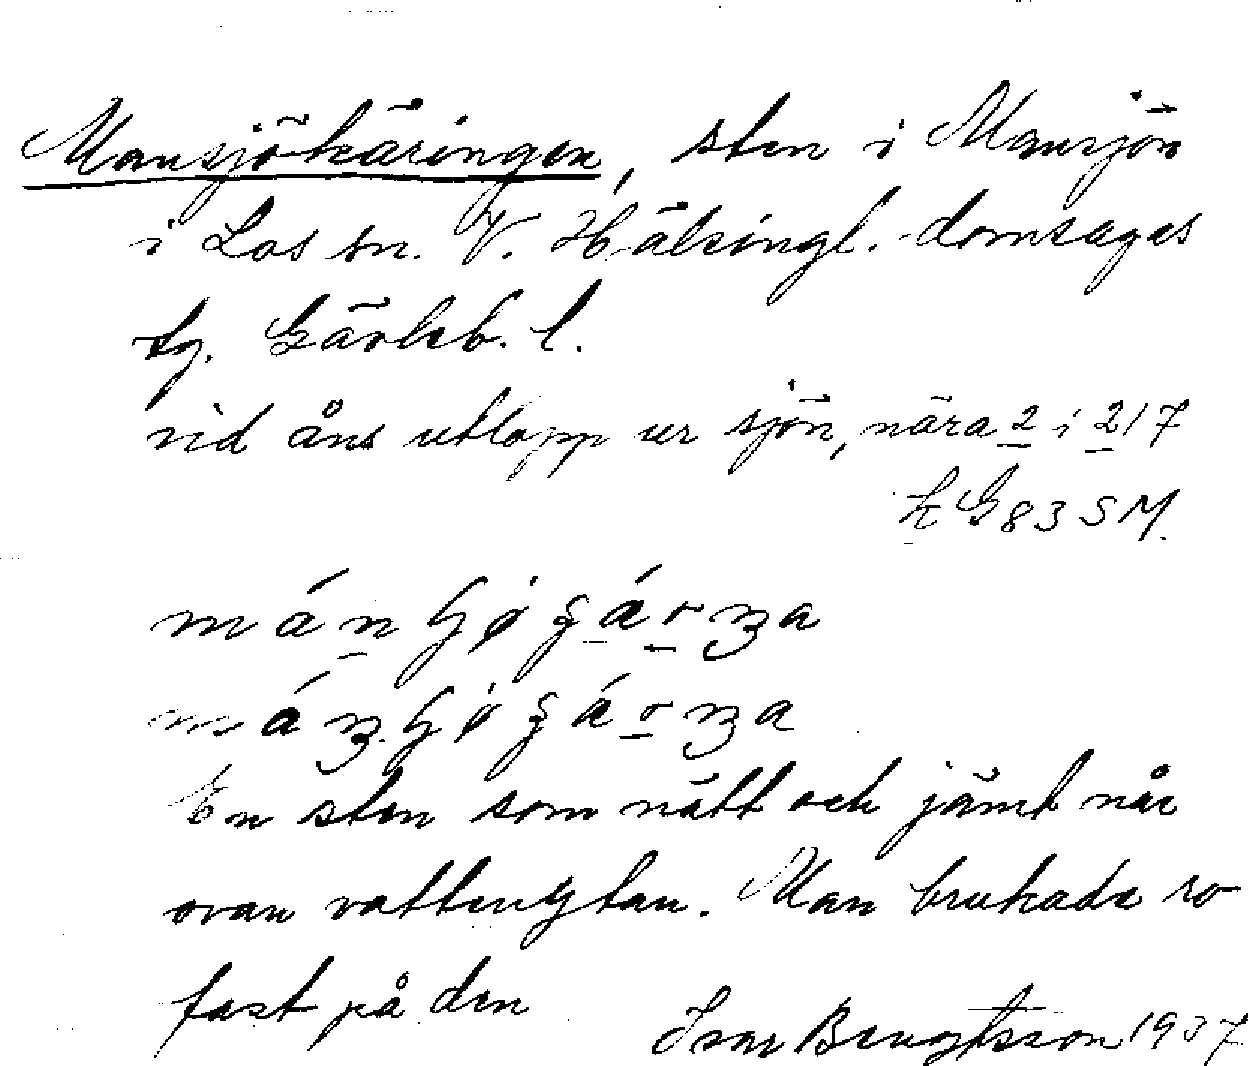 Mansjökäringen, sten i Mansjön
i Los sn. V. Hälsingl. domsagas
tg. Gävleb. l.
vid åns utlopp ur sjön, nära 2 i 217
k G 83 SM
En sten som nätt och jämt når
ovan vattenytan. Man brukade ro
fast på den
Ivar Bengtsson 1937